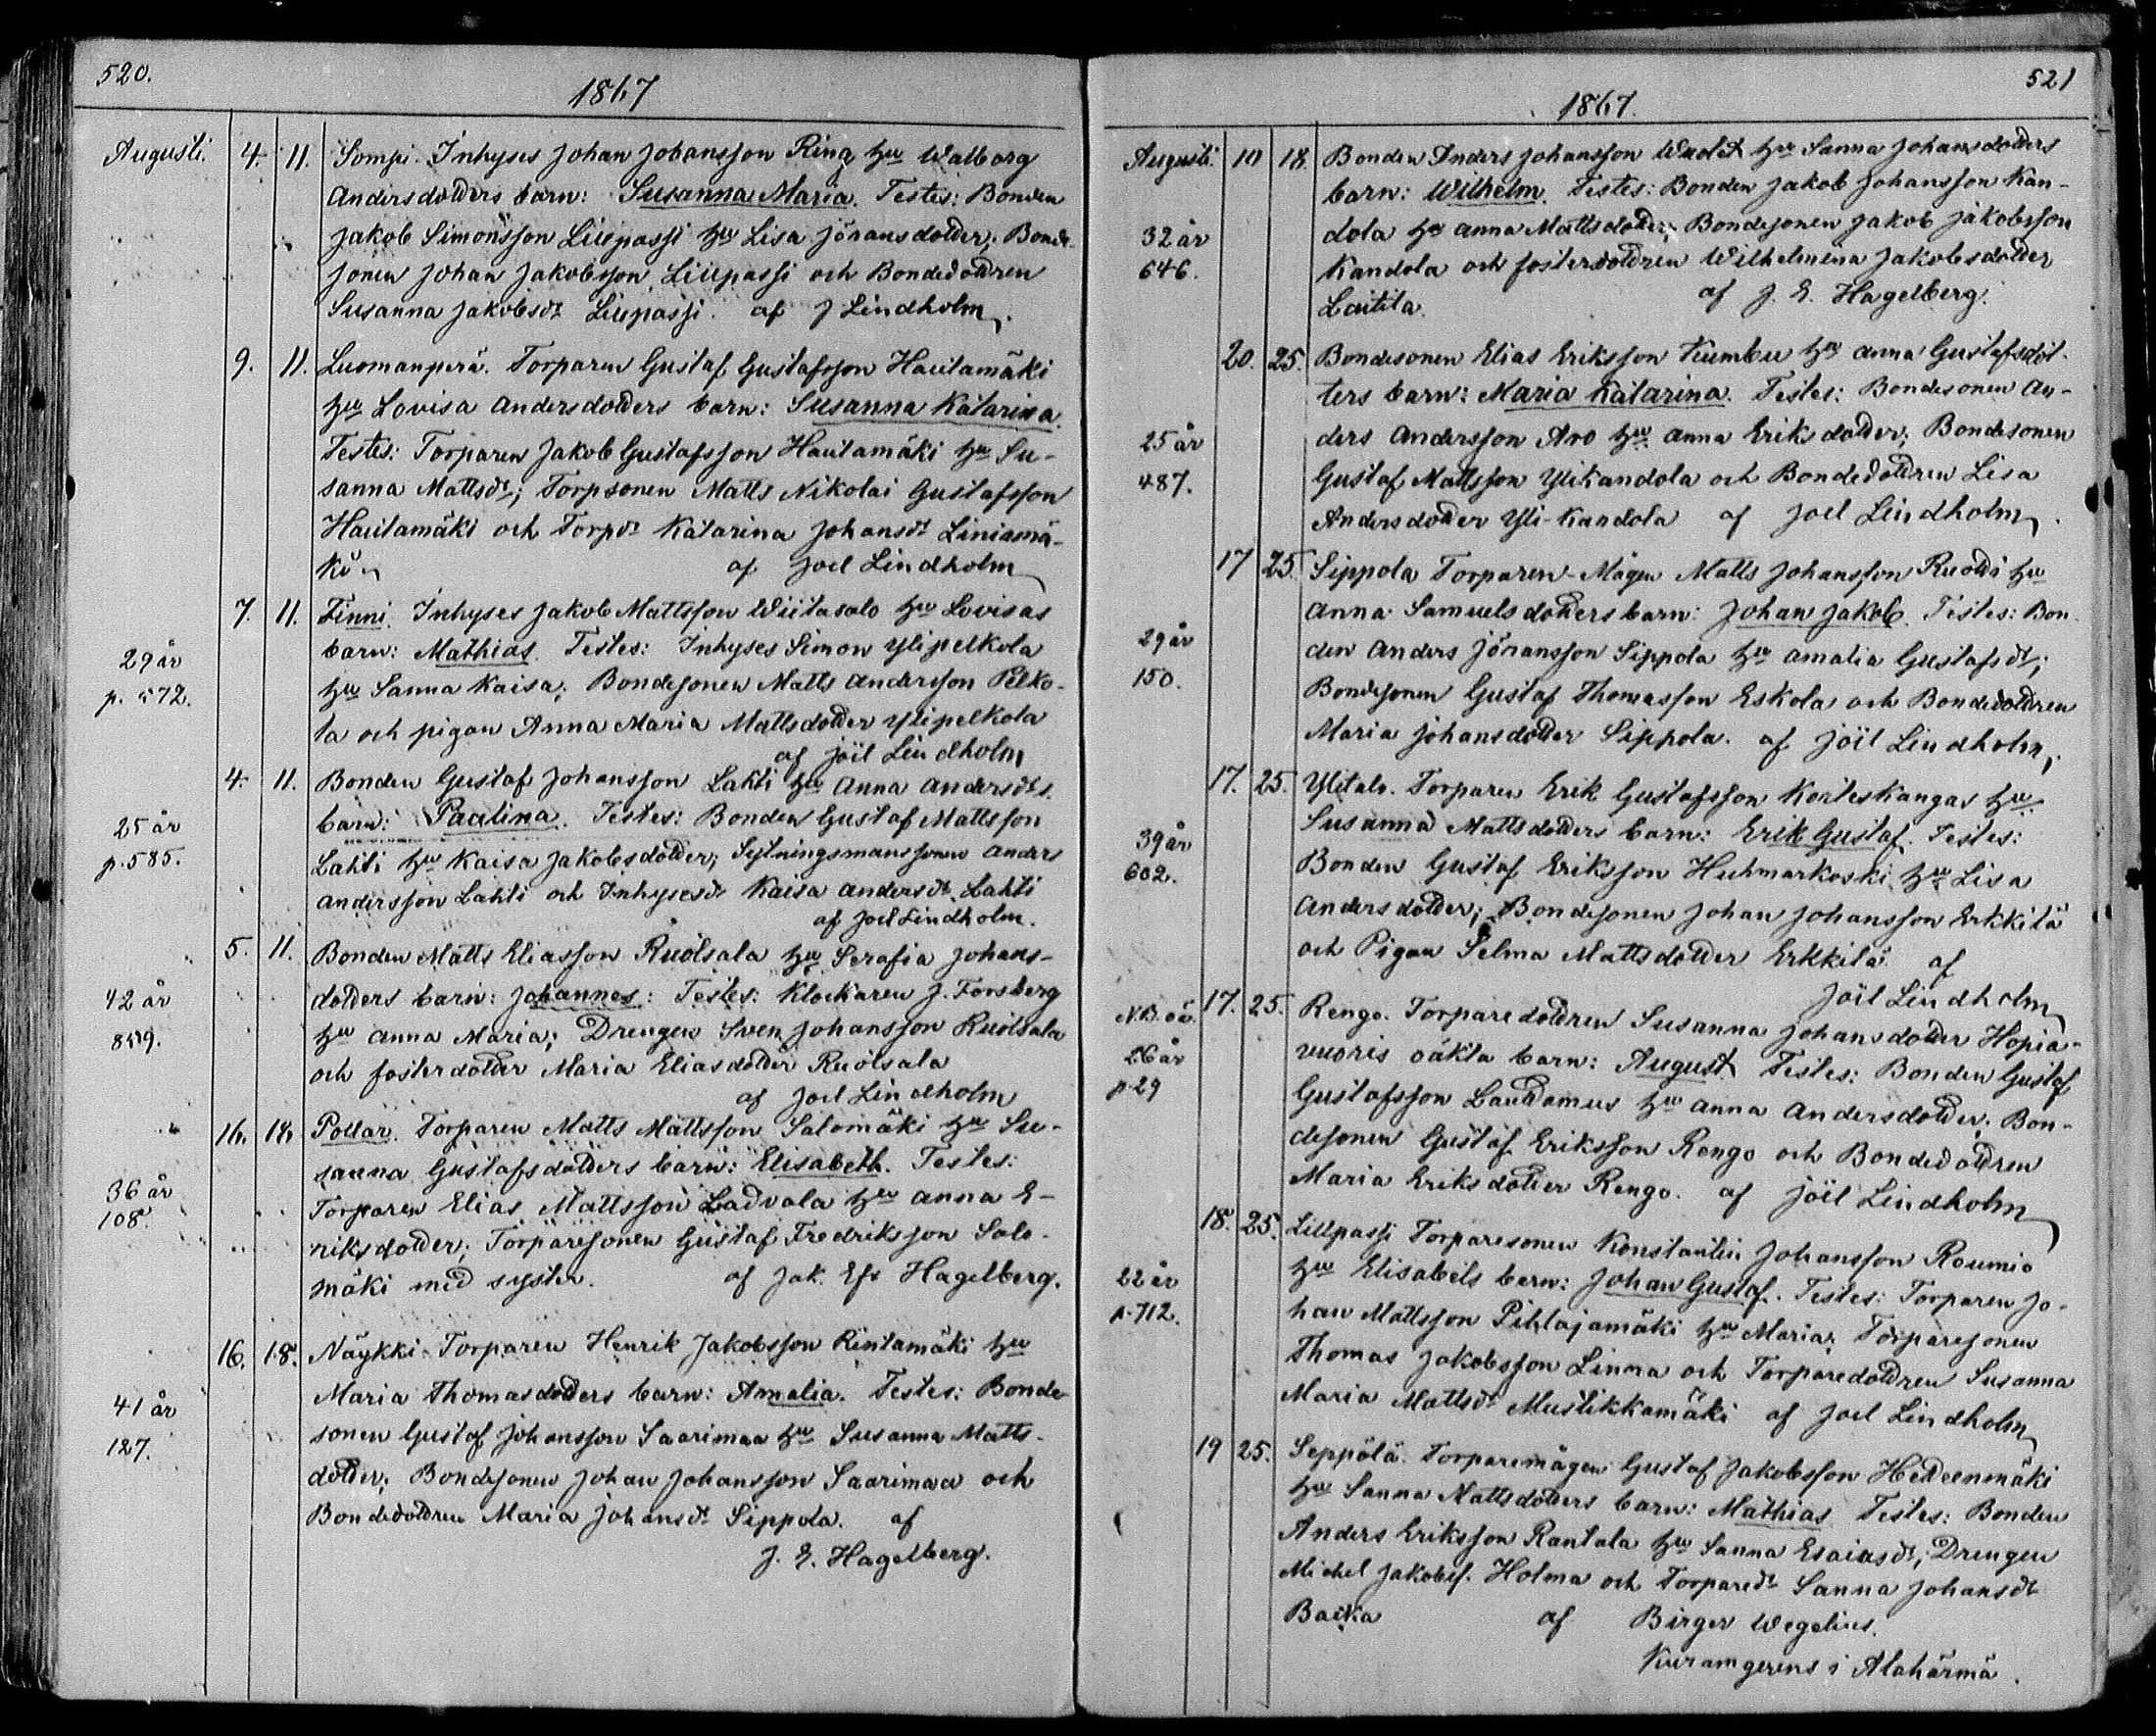 520.
1867
Augusti. 4. 11. Sompi. Inhyses Johan Johansson Ring hu Walborg
Andersdotters barn: Susanna Maria. Testes: Bonden
Jakob Simonsson Liupassi hu Lisa Jöransdotter; Bonde-
sonen Johan Jakobsson Liupassi och Bondedottren
Susanna Jakobsdr Liupassi. af J Lindholm.
9. 11. Luomanperä. Torparen Gustaf Gustafsson Hautamäki
hu Lovisa Andersdotters barn: Susanna Katarina.
Testes: Torparen Jakob Gustafsson Hautamäki hu Su-
sanna Mattsdr; Torpsonen Matts Nikolai Gustafsson
Hautamäki och Torpdr Katarina Johansdr
af Joel Lindholm
7. 11. Finni. Inhyses Jakob Mattsson Wiitasalo hu Lovisas
barn: Mathias. Testes: Inhyses Simon Ylipelkola
29 år
hu Sanna Kaisa; Bondesonen Matts Andersson Pelko-
p. 572.
la och pigan Anna Maria Mattsdotter Ylipelkola
af Joël Lindholm
4. 11. Bonden Gustaf Johansson Lahti hu Anna Andersdrs
barn: Paulina. Testes: Bonden Gustaf Mattsson
25 år
Lahti hu Kaisa Jakobsdotter; Sytningsmanssonen Anders
p. 585.
Andersson Lahti och Inhysesdr Kaisa Andersdr Lahti
af Joel Lindholm.
5. 11. Bonden Matts Eliasson Ruotsala hu Serafia Johans-
dotters barn: Johannes: Testes: Klockaren J. Forsberg
42 år
hu Anna Maria; Drengen Sven Johansson Ruotsala
och fosterdotter Maria Eliasdotter Ruotsala
af Joel Lindholm
16. 18. Pollar. Torparen Matts Mattsson Salomäki hu Su-
sanna Gustafsdotters barn: Elisabeth. Testes:
36 år
Torparen Elias Mattsson Ladvala hu Anna E-
108.
riksdotter; Torparesonen Gustaf Fredriksson Salo-
mäki med syster. af Jak. Efr Hagelberg.
16. 18. Näykki. Torparen Henrik Jakobsson Rintamäki hu
Maria Thomasdotters barn: Amalia. Testes: Bonde-
41 år
sonen Gustaf Johansson Saarimaa hu Susanna Matts-
127.
dotter; Bondesonen Johan Johansson Saarimaa och
Bondedottren Maria Johansdr Sippola. af
J. E. Hagelberg.
521
1867.
Augusti. 10 18. Bonden Anders Johansson hu Sanna Johansdotters
barn: Wilhelm. Testes: Bonden Jakob Johansson Kan-
32 år
dola hu Anna Mattsdotter; Bondesonen Jakob Jakobsson
646.
Kandola och fosterdottren Wilhelmina Jakobsdotter
Laitila. af J. E. Hagelberg.
20. 25. Bondesonen Elias Eriksson Kumbu hu Anna Gustafsdot-
ters barn: Maria Katarina. Testes: Bondesonen An-
25 år
ders Andersson Aro hu Anna Eriksdotter; Bondesonen
487.
Gustaf Mattsson Ylikandola och Bondedottren Lisa
Andersdotter Yli-Kandola af Joel Lindholm.
17 25. Sippola Torparen-Mågen Matts Johansson Ruotsi hu
Anna Samuelsdotters barn: Johan Jakob. Testes: Bon-
29 år
den Anders Jöransson Sippola hu Amalia Gustafsdr;
150.
Bondesonen Gustaf Thomasson Eskola och Bondedottren
Maria Johansdotter Sippola. af Joël Lindholm,
17. 25. Ylitalo. Torparen Erik Gustafsson Korteskangas hu
Susanna Mattsdotters barn: Erik Gustaf. Testes:
39 år
Bonden Gustaf Eriksson Huhmarkoski hu Lisa
602.
Andersdotter; Bondesonen Johan Johansson Erkkilä
och Pigan Selma Mattsdotter Erkkilä. af
Joël Lindholm
N.B. oä. 17. 25. Rengo. Torparedottren Susanna Johansdotter Hopia-
26 år
vuoris oäkta barn: August. Testes: Bonden Gustaf
p. 29
Gustafsson Lautamus hu Anna Andersdotter; Bon-
desonen Gustaf Eriksson Rengo och Bondedottren
Maria Eriksdotter Rengo. af Joël Lindholm
18. 25. Liupassi Torparesonen Konstantin Johansson Raumio
22 år
hu Elisabets barn: Johan Gustaf. Testes: Torparen Jo-
p. 712.
han Mattsson Pihlajamäki hu Maria; Torparesonen
Thomas Jakobsson Linna och Torparedottren Susanna
Maria Mattsdr Mustikkamäki af Joel Lindholm
19 25. Seppälä. Torparemågen Gustaf Jakobsson Hedeenmäki
hu Sanna Mattsdotters barn: Mathias. Testes: Bonden
Anders Eriksson Rantala hu Sanna Esaiasdr; Drengen
Michel Jakobss. Holma och Torparedr Sanna Johansdr
Backa af Birger Wegelius.
Kuramgerens i Alahärmä.